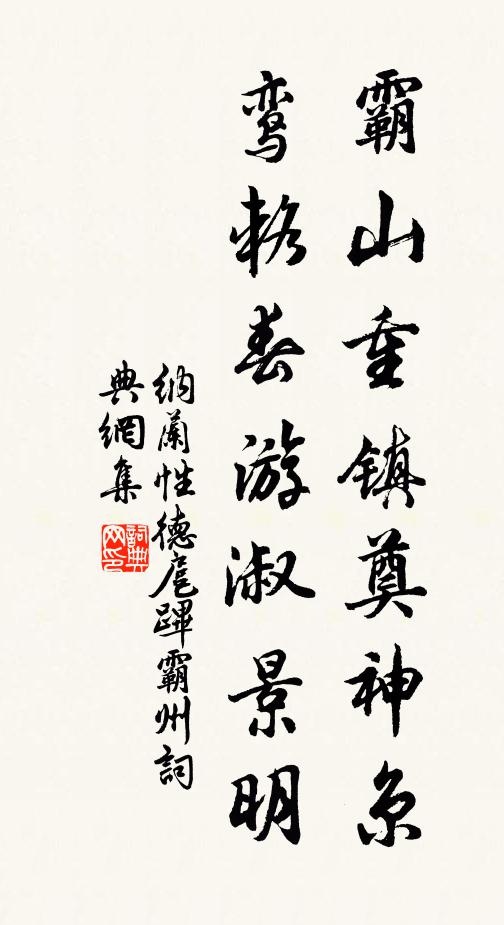 霸山重镇奠神京
鸾輅春游淑景明
納蘭性德扈蹕霸州詞
典網集
詞典
网印